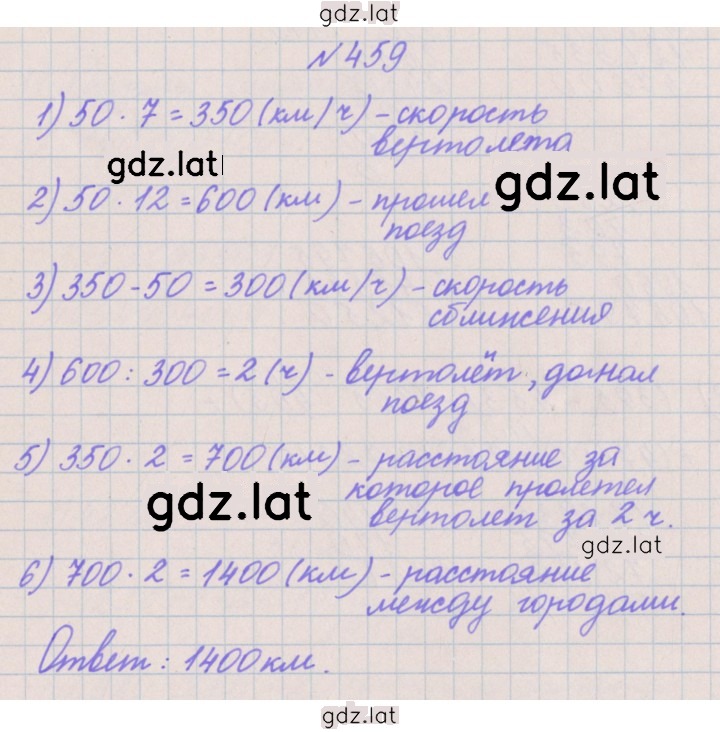 gdz.lat
№459
1) 50 · 7 = 350 (км/ч) - скорость
вертолета
gdz.lat
gdz.lat
2) 50 · 12 = 600 (км) - прошел
поезд
3) 350 - 50 = 300 (км/ч) - скорость
сближения
4) 600 : 300 = 2 (ч) - вертолёт, догнал
поезд
5) 350 · 2 = 700 (км) - расстояние за
которое пролетел
вертолет за 2 ч.
gdz.lat
gdz.lat
6) 700 · 2 = 1400 (км) - расстояние
между городами.
Ответ: 1400 км.
gdz.lat